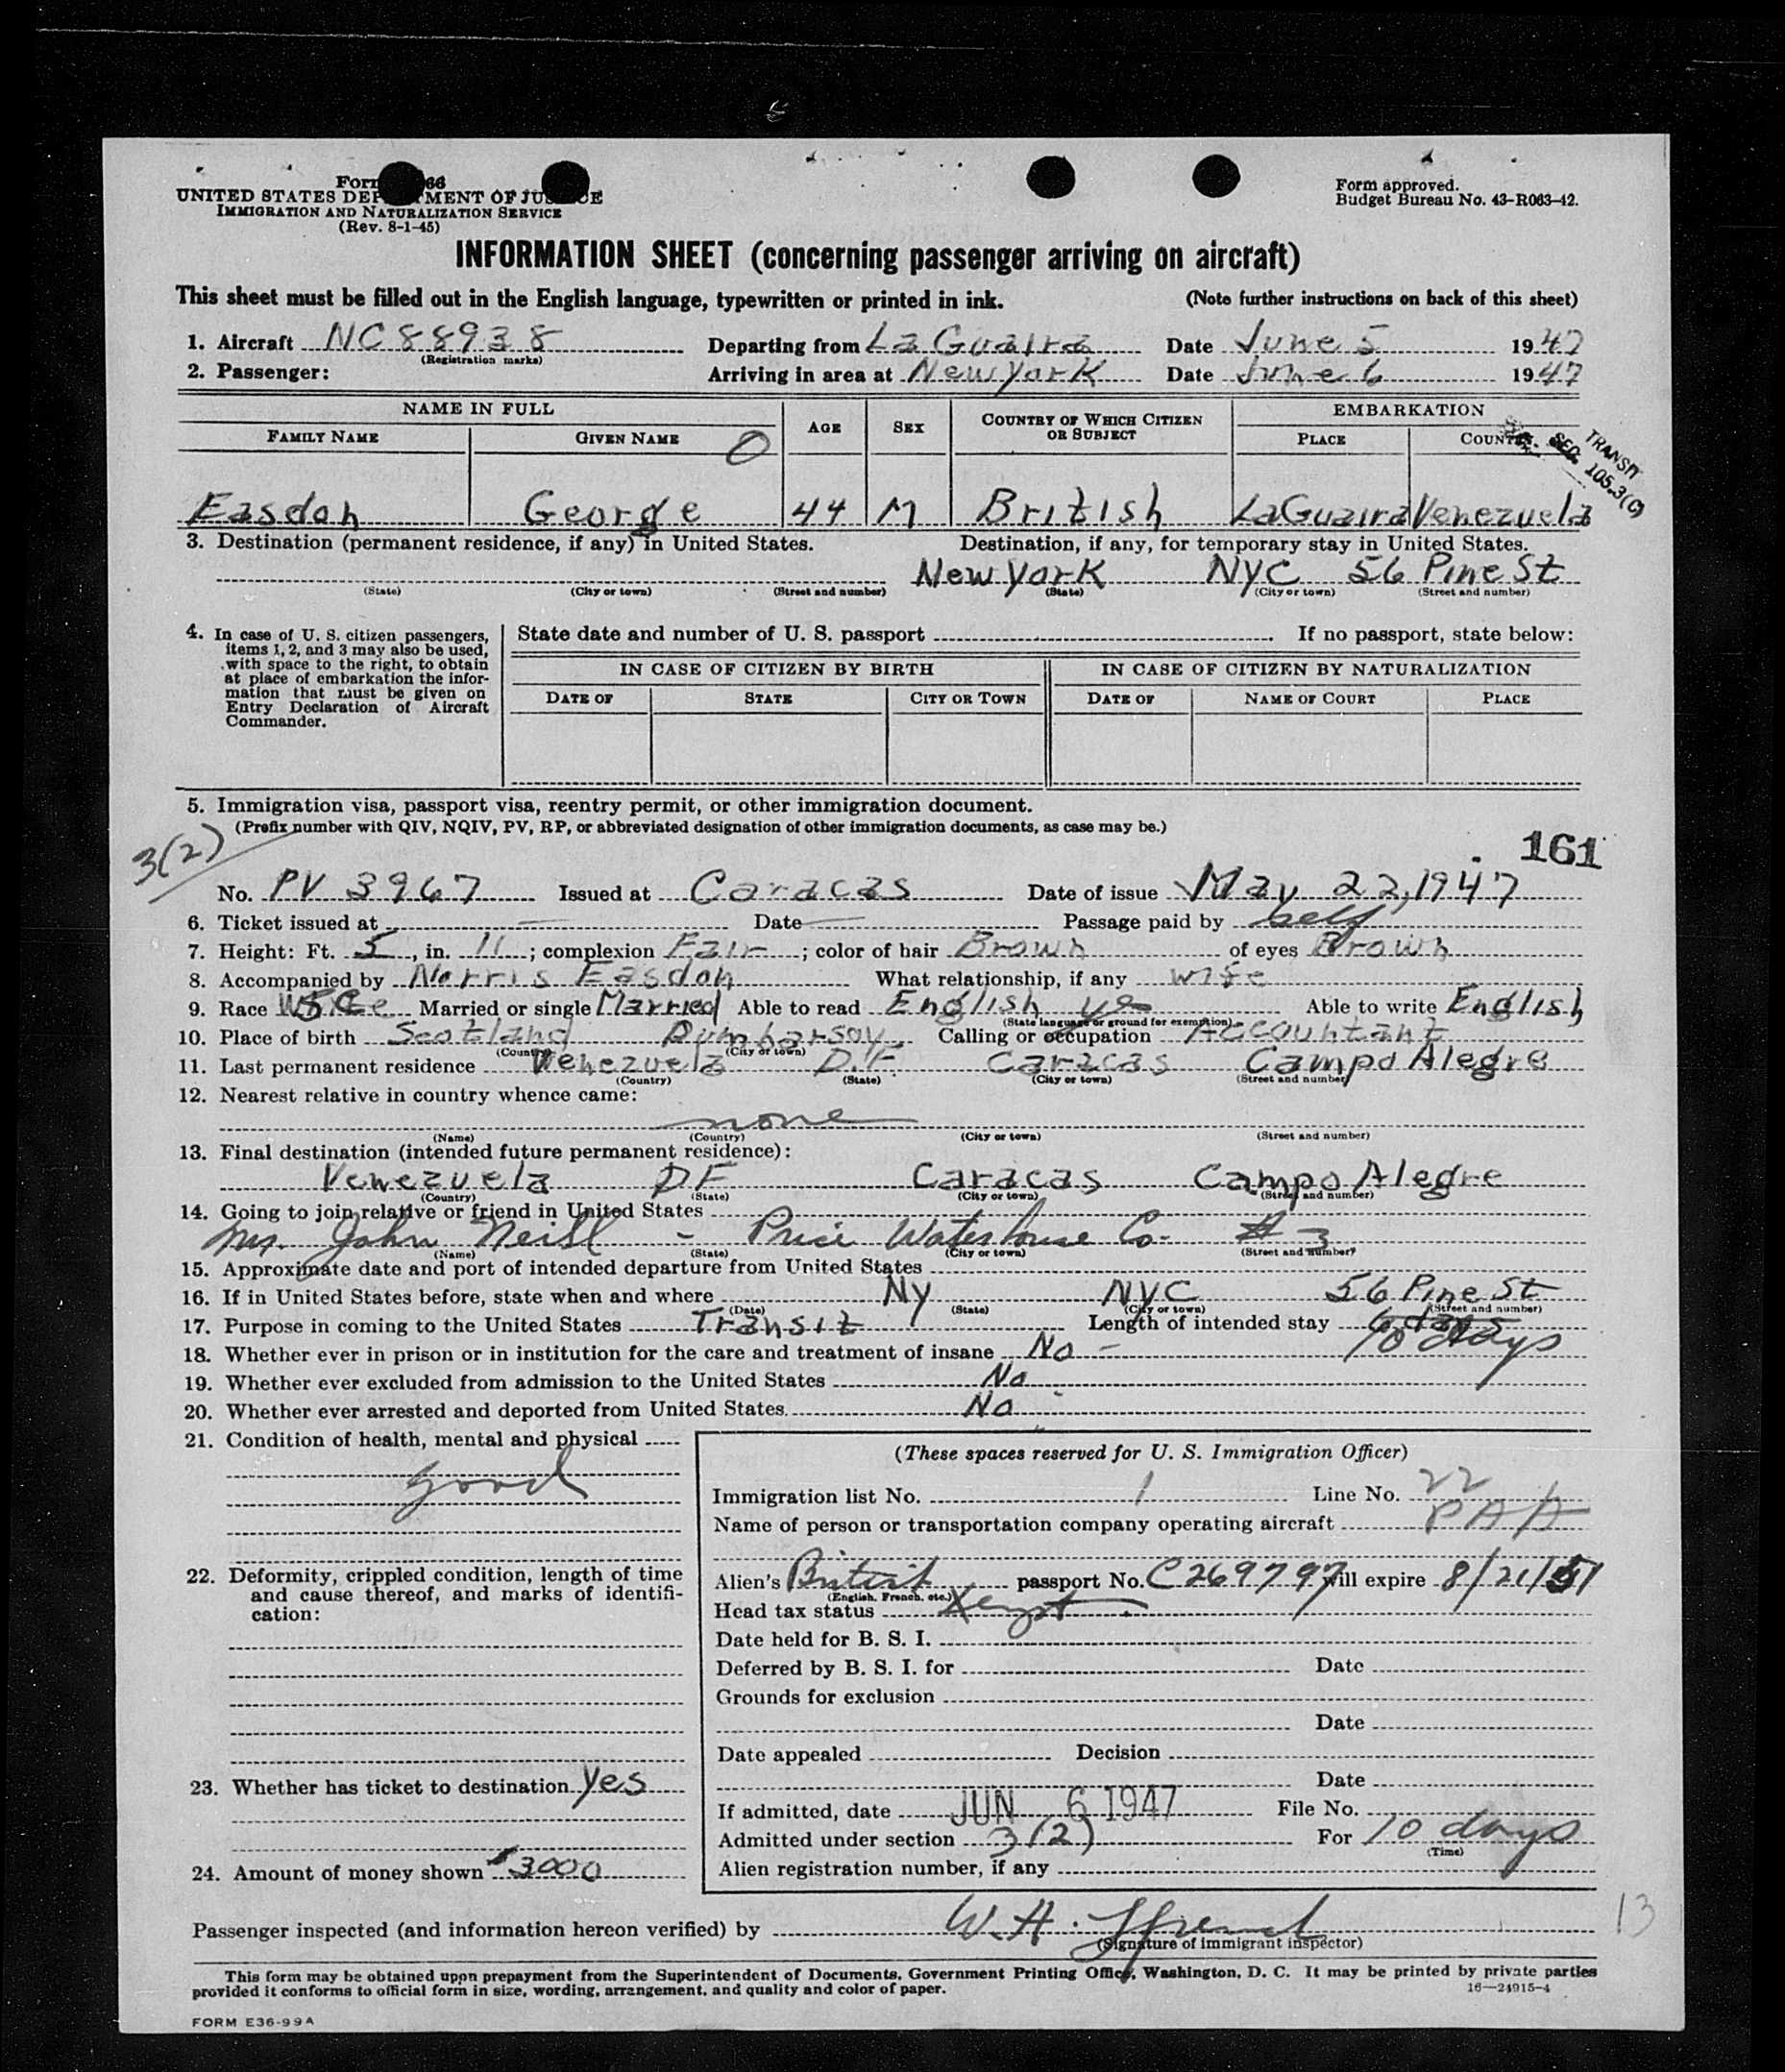 Form 66
UNITED STATES DEPARTMENT OF JUSTICE
IMMIGRATION AND NATURALIZATION SERVICE
(Rev. 8-1-45)
Form approved.
Budget Bureau No. 43-R063-42.
INFORMATION SHEET (concerning passenger arriving on aircraft)
This sheet must be filled out in the English language, typewritten or printed in ink. (Note further instructions on back of this sheet)
1. Aircraft NC88938 Departing from La Guaira Date June 5 1947
(Registration marks)
2. Passenger: Arriving in area at New York Date June 6 1947
NAME IN FULL AGE SEX COUNTRY OF WHICH CITIZEN OR SUBJECT EMBARKATION
FAMILY NAME GIVEN NAME 0 PLACE COUNTRY
TRANSIT
SEC. 105.3(c)
Easdon George 44 M British LaGuaira Venezuela
3. Destination (permanent residence, if any) in United States. Destination, if any, for temporary stay in United States.
New York NYC 56 Pine St
(State) (City or town) (Street and number) (State) (City or town) (Street and number)
4. In case of U. S. citizen passengers, items 1, 2, and 3 may also be used, with space to the right, to obtain at place of embarkation the information that must be given on Entry Declaration of Aircraft Commander.
State date and number of U. S. passport . If no passport, state below:
IN CASE OF CITIZEN BY BIRTH IN CASE OF CITIZEN BY NATURALIZATION
DATE OF STATE CITY OR TOWN DATE OF NAME OF COURT PLACE
5. Immigration visa, passport visa, reentry permit, or other immigration document.
(Prefix number with QIV, NQIV, PV, RP, or abbreviated designation of other immigration documents, as case may be.)
3(2)
161
No. PV 3967 Issued at Caracas Date of issue May 22, 1947
6. Ticket issued at Date Passage paid by self
7. Height: Ft. 5, in. 11; complexion Fair; color of hair Brown of eyes Brown
8. Accompanied by Norris Easdon What relationship, if any wife
9. Race White Married or single Married Able to read English yes Able to write English
(State language or ground for exemption)
10. Place of birth Scotland Calling or occupation Accountant
(Country) (City or town)
11. Last permanent residence Venezuela D.F. Caracas Campo Alegre
(Country) (State) (City or town) (Street and number)
12. Nearest relative in country whence came:
none
(Name) (Country) (City or town) (Street and number)
13. Final destination (intended future permanent residence):
Venezuela DF Caracas Campo Alegre
(Country) (State) (City or town) (Street and number)
14. Going to join relative or friend in United States
John - Price Waterhouse Co.
(Name) (State) (City or town) (Street and number)
15. Approximate date and port of intended departure from United States
16. If in United States before, state when and where Ny NYC 56 Pine St
(Date) (State) (City or town) (Street and number)
17. Purpose in coming to the United States Transit Length of intended stay 10 days
18. Whether ever in prison or in institution for the care and treatment of insane No -
19. Whether ever excluded from admission to the United States No
20. Whether ever arrested and deported from United States No
21. Condition of health, mental and physical
good
22. Deformity, crippled condition, length of time and cause thereof, and marks of identification:
23. Whether has ticket to destination Yes
24. Amount of money shown $3000
(These spaces reserved for U. S. Immigration Officer)
Immigration list No. 1 Line No. 22
Name of person or transportation company operating aircraft PAA
Alien's British passport No. C269797 will expire 8/21/51
(English, French, etc.)
Head tax status
Date held for B. S. I.
Deferred by B. S. I. for Date
Grounds for exclusion
Date
Date appealed Decision
Date
If admitted, date JUN 6 1947 File No.
Admitted under section 3(2) For 10 days
(Time)
Alien registration number, if any
Passenger inspected (and information hereon verified) by W.H.
(Signature of immigrant inspector)
13
This form may be obtained upon prepayment from the Superintendent of Documents, Government Printing Office, Washington, D. C. It may be printed by private parties
provided it conforms to official form in size, wording, arrangement, and quality and color of paper. 16—24915-4
FORM E36-99A